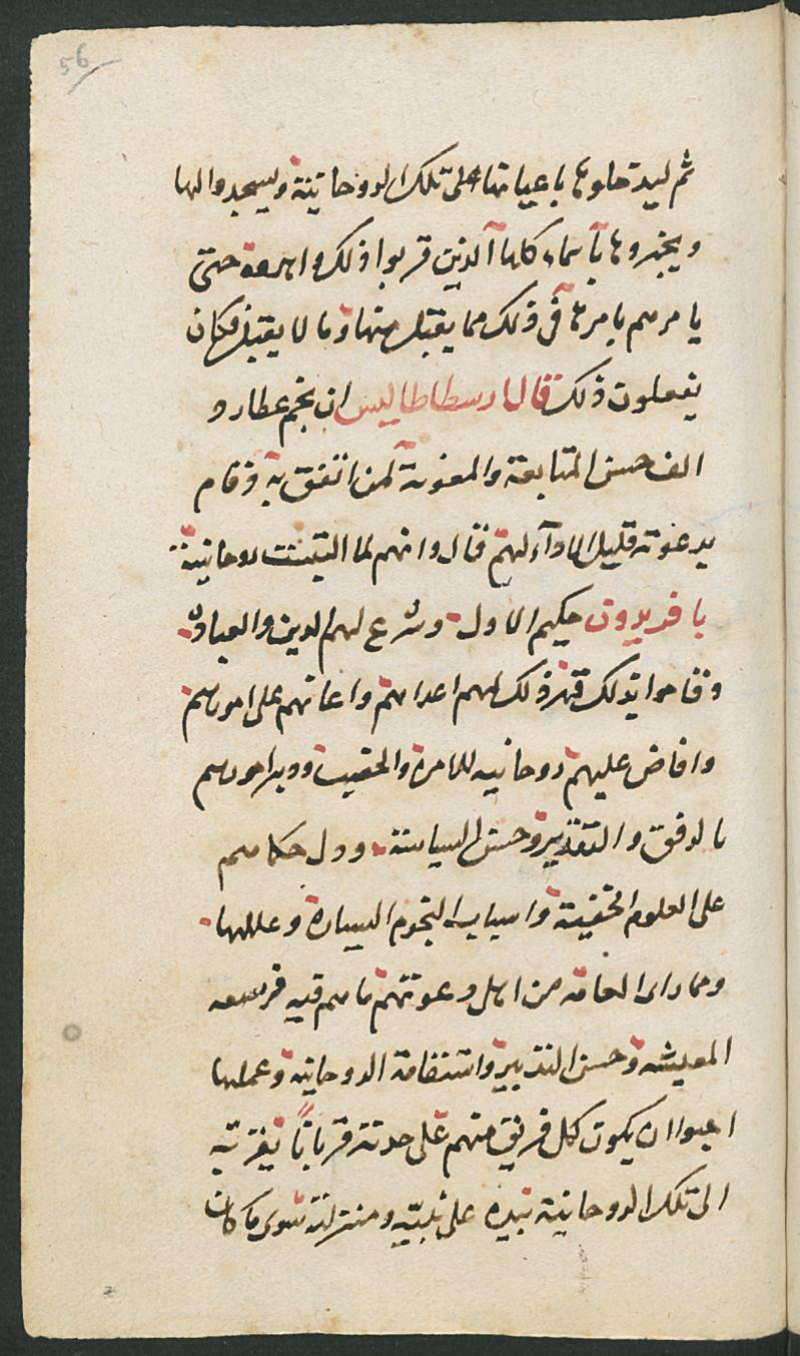 56
ثم ليدخلوها باعيانها على تلك الروحانية ويسجدوا لها
ويخبروها بأسماء كلها الذين قربوا ذلك حتى
يامرهم بامرها فى ذلك مما يقبل منها وما لا يقبل فكان
يفعلون ذلك قال ارسطاطاليس ان نجم عطارد
الف حسن المتابعة والمعونة لمن اتفق به وقام
بدعوته قليل قال وانهم لما روحانية
بافريدون حكيم الاول وشرع لهم الدين والعبادة
وقاموا بذلك قهر ذلك لهم اعداهم واعانهم على امورهم
وافاض عليهم روحانيه ودبر امورهم
بالرفق والتقدير وحسن السياسة ودل حكامهم
على العلوم الخفية واسباب النجوم السيارة وعللها
ومما راى العامة من اهل دعوتهم ماهم فيه
المعيشه وحسن التدبير واستقامة الروحانية وعملها
احبوا ان يكون كل فريق منهم على حدته قربانا
الى تلك الروحانية على ومنزلته سوى ما كان